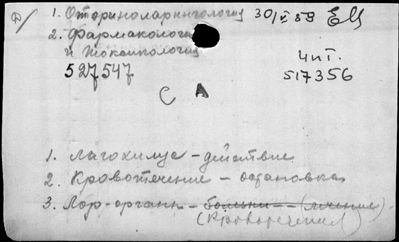 1. Оториноларингология 30/V 58 ЕЦ
2. Фармакология
и токсикология
527547
Чит.
517356
С А
1. Лагохилус – действие
2. Кровотечение – остановка
3. Лор-органы – (лечение)
(Кровотечения)